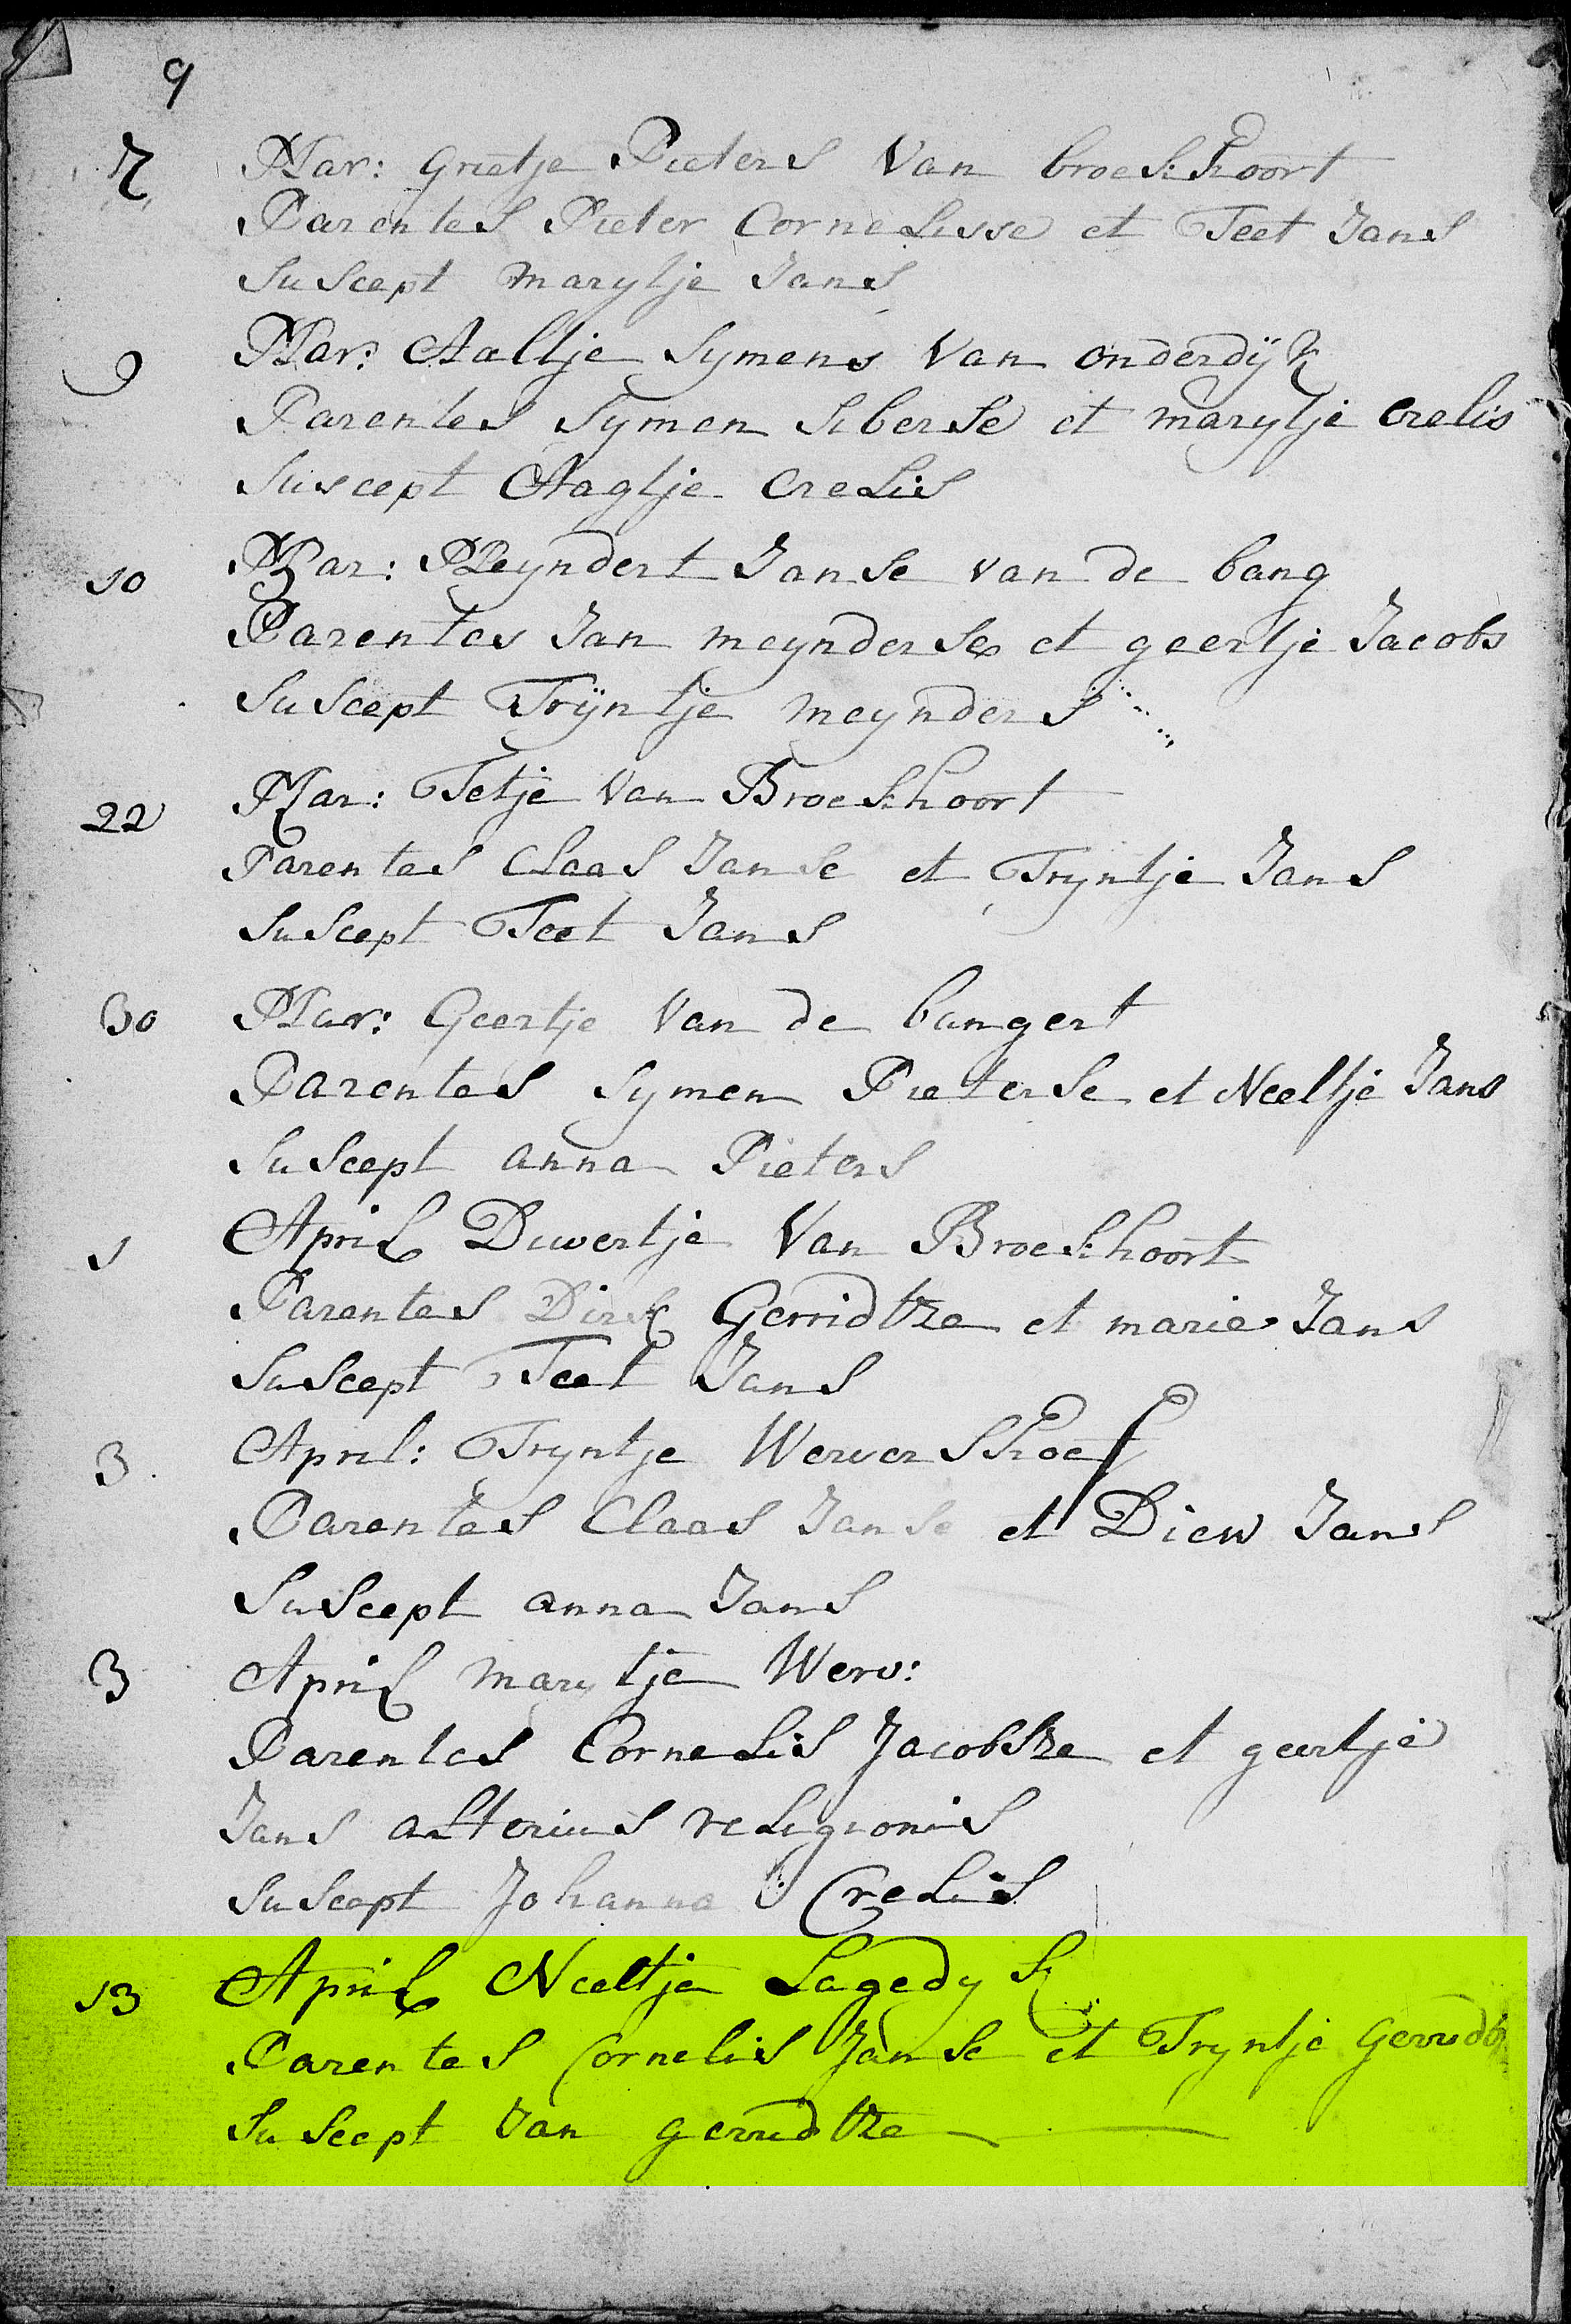 9
7 Mar: Grietje Pieters Van broekhoort
Parentes Pieter Cornelisse et Teet Jans
Suscept marytje Jans
9 Mar: Aaltje Symens Van onderdijk
Parentes Symen Siberse et marytje Crelis
Suscept Aagtje Crelis
10 Mar: Meyndert Janse van de bang
Parentes Jan meynderse et geertje Jacobs
Suscept Trijntje meynders
22 Mar: Tetje Van Broekhoort
Parentes Claas Janse et Tryntje Jans
Suscept Teet Jans
30 Mar: Geertje Van de bangert
Parentes Symen Pieterse et Neeltje Jans
Suscept anna Pieters
1 April Duwertje Van Broekhoort
Parentes Dirk Gerridtze et marie Jans
Suscept Teet Jans
3 April: Tryntje Wervershoef
Parentes Claas Janse et Diew Jans
Suscept anna Jans
3 April marytje Werv:
Parentes Cornelis Jacobsze et geertje
Jans alterius religionis
Suscept Johanna Crelis
13 April Neeltje Lagedyk
Parentes Cornelis Janse et Tryntje
Suscept Jan gerridtze